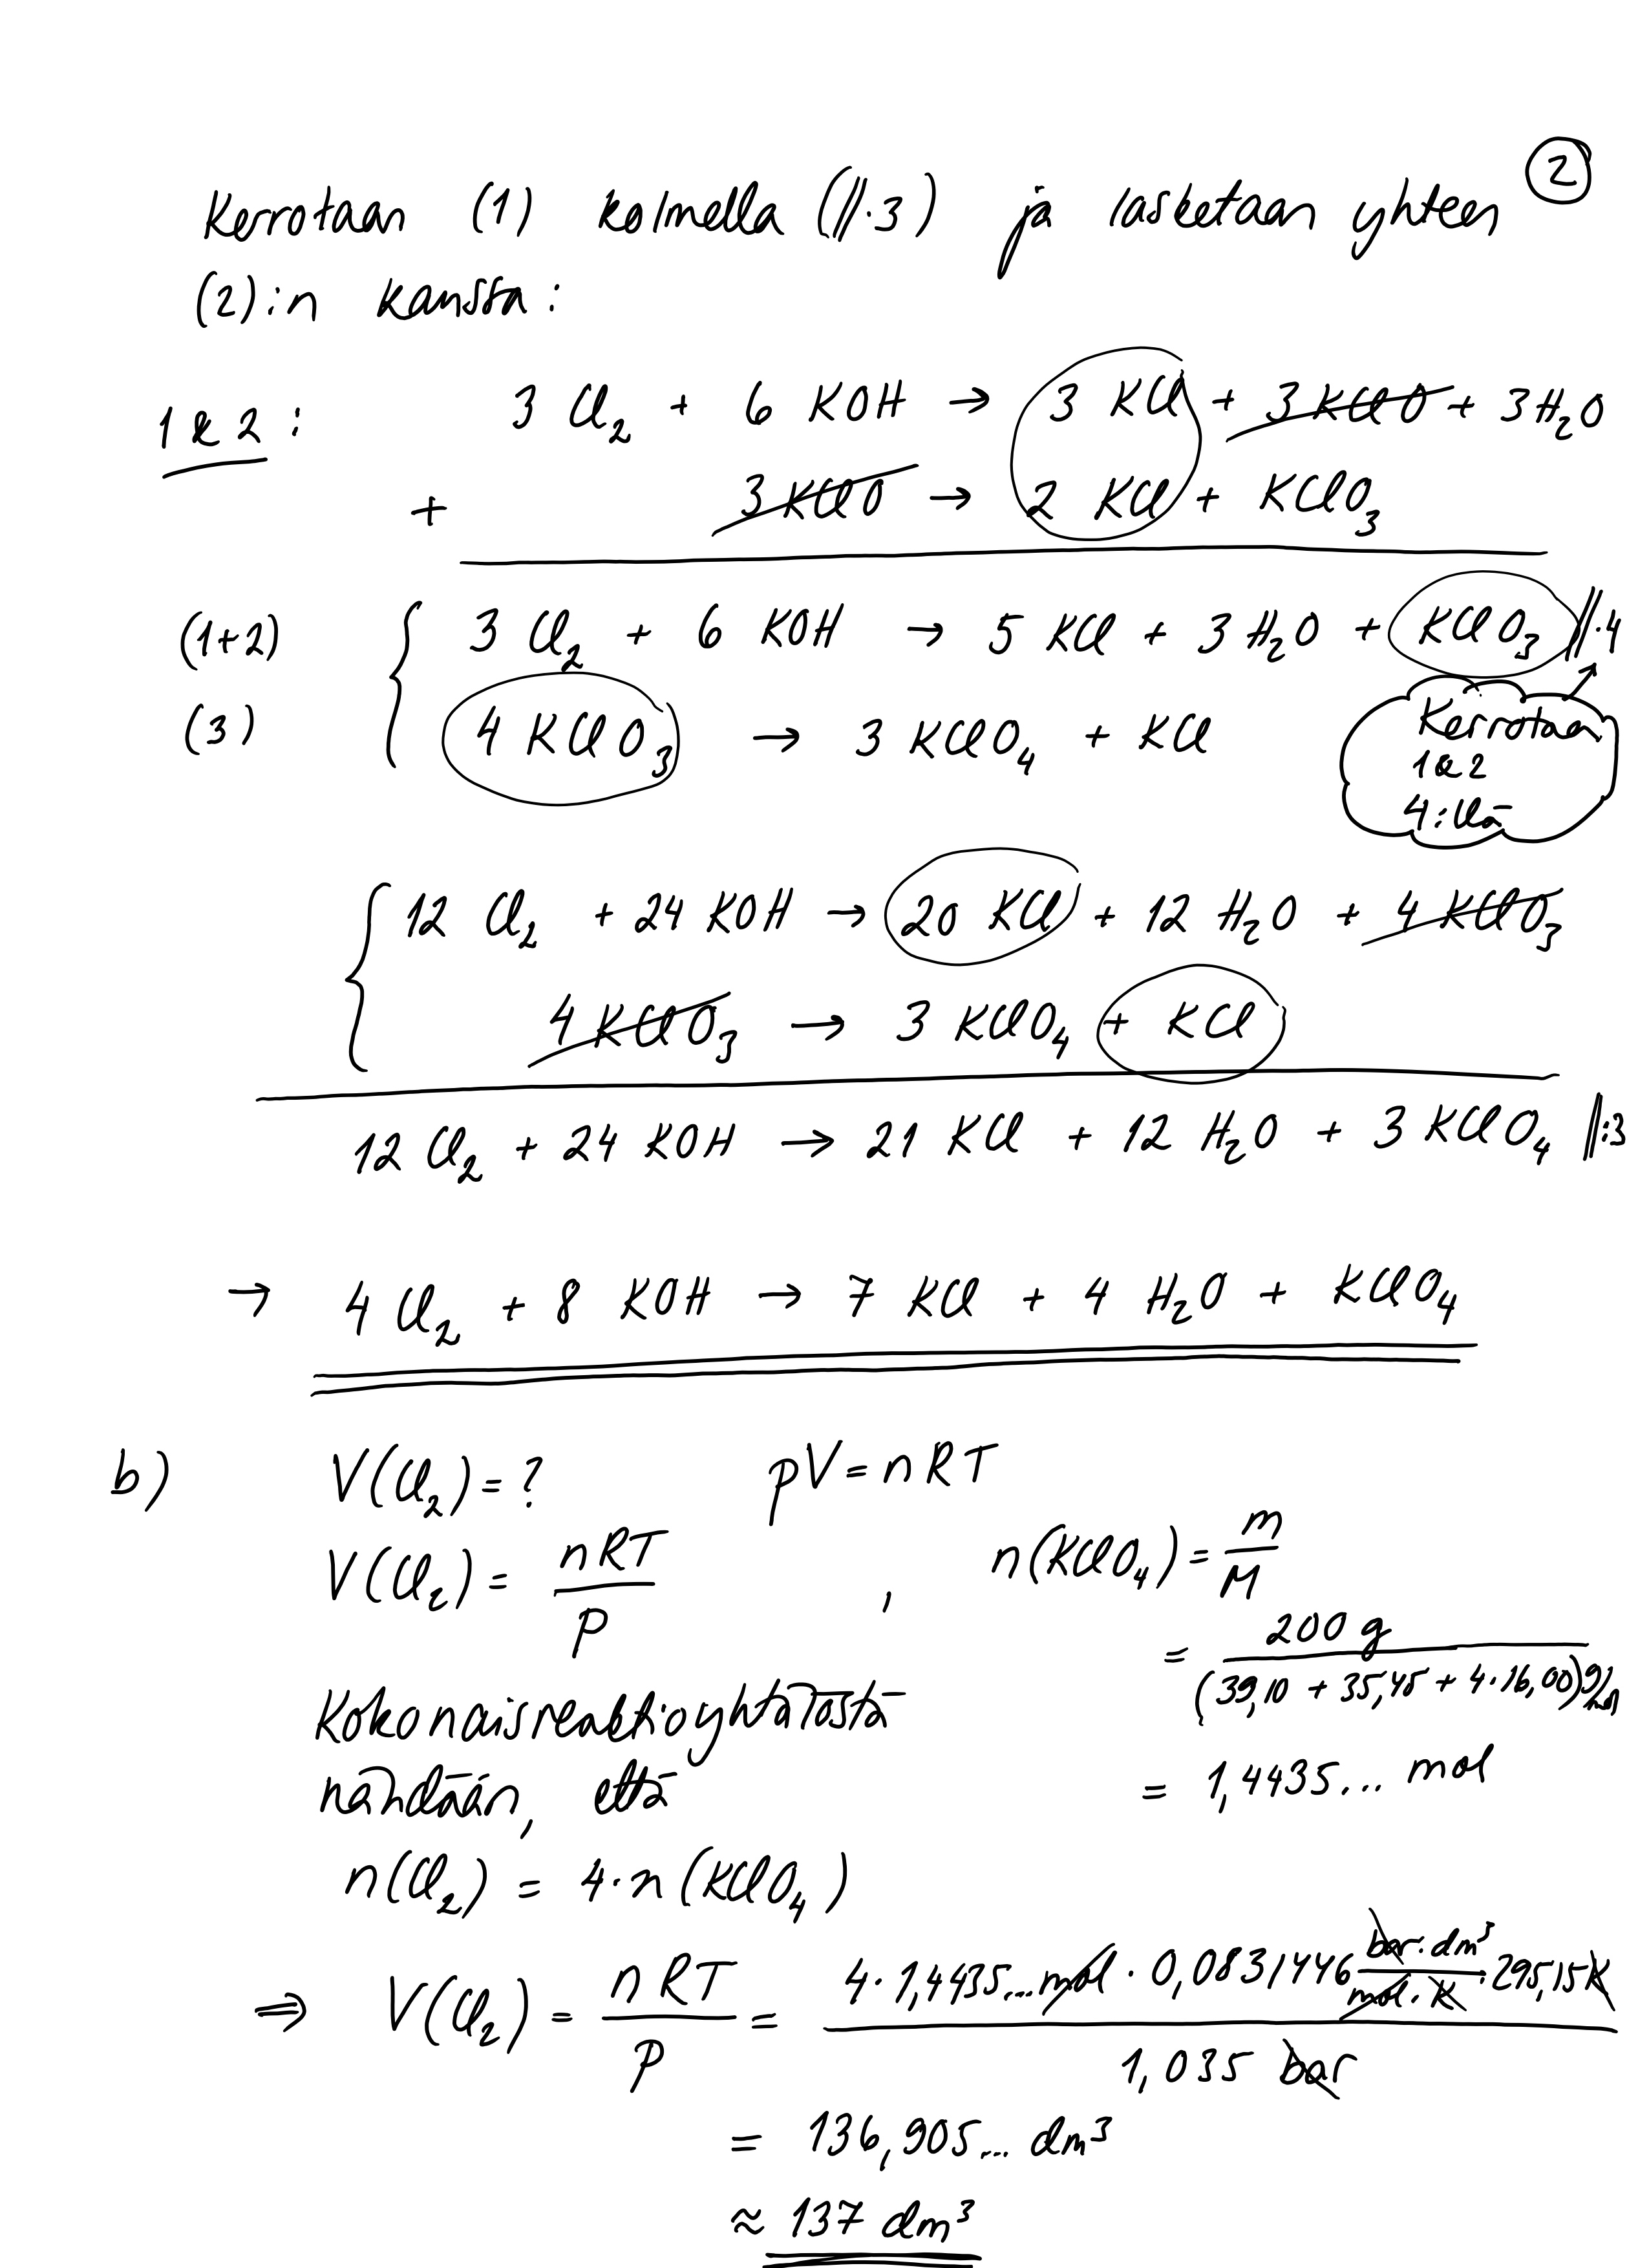 2
Kerrotaan (1) kolmella (||·3) ja lasketaan yhteen
(2):n kanssa:
1 & 2: 3 Cl₂ + 6 KOH → 3 KCl + 3 KClO + 3 H₂O
+ 3 KClO → 2 KCl + KClO₃
(1+2) 3 Cl₂ + 6 KOH → 5 KCl + 3 H₂O + KClO₃ ||·4
(3) 4 KClO₃ → 3 KClO₄ + KCl
Kerrotaan
1&2
4:llä
12 Cl₂ + 24 KOH → 20 KCl + 12 H₂O + 4 KClO₃
4 KClO₃ → 3 KClO₄ + KCl
12 Cl₂ + 24 KOH → 21 KCl + 12 H₂O + 3 KClO₄ ||:3
→ 4 Cl₂ + 8 KOH → 7 KCl + 4 H₂O + KClO₄
b) V(Cl₂) = ? pV = nRT
V(Cl₂) = nRT/p , n(KClO₄) = m/M
= 200 g / (39,10 + 35,45 + 4·16,00) g/mol
= 1,4435... mol
Kokonaisreaktioyhtälöstä
nähdään, että
n(Cl₂) = 4·n(KClO₄)
⇒ V(Cl₂) = nRT/p = 4·1,4435...mol · 0,0831446 bar·dm³/mol·K · 295,15 K / 1,035 bar
= 136,905... dm³
≈ 137 dm³